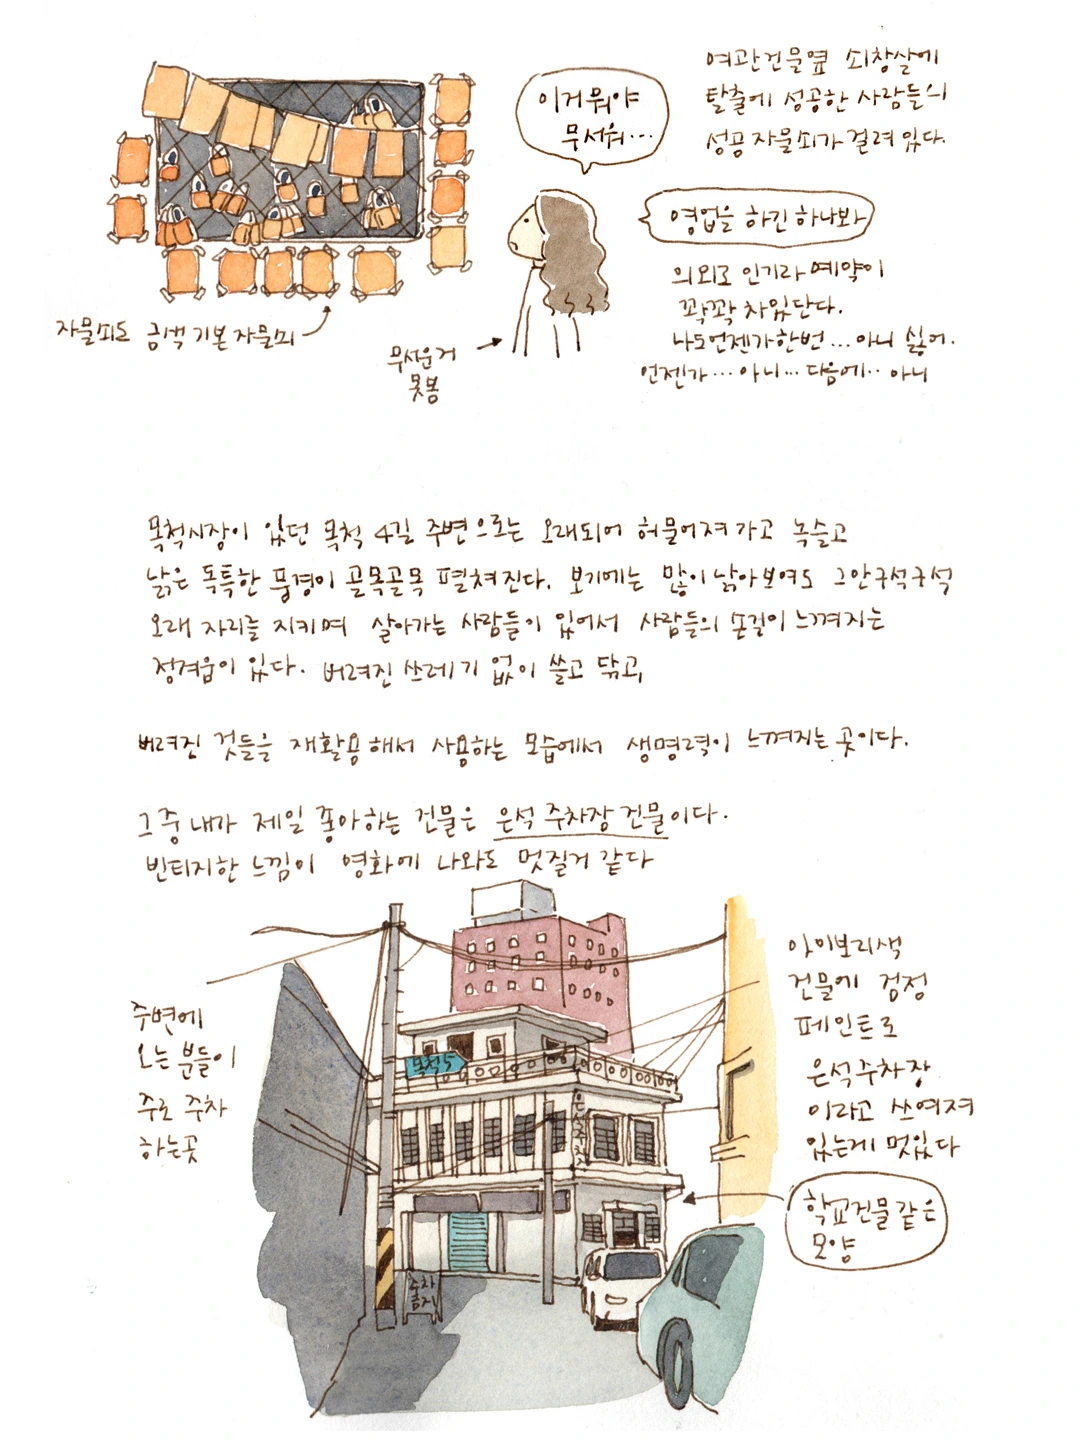 여관건물옆 쇠창살에
탈출에 성공한 사람들의
성공 자물쇠가 걸려있다.
이거 뭐야
무서워...
영업을 하긴 하나봐
의외로 인기라 예약이
꽉꽉 차있단다.
나도언젠가한번... 아니 싫어.
언젠가... 아니... 다음에.. 아니
자물쇠도 금색 기본 자물쇠
무서운거
못봄
목척시장이 있던 목척 4길 주변으로는 오래되어 허물어져 가고 녹슬고
낡은 독특한 풍경이 골목골목 펼쳐진다. 보기에는 많이 낡아보여도 그안구석구석
오래 자리를 지키며 살아가는 사람들이 있어서 사람들의 손길이 느껴지는
정겨움이 있다. 버려진 쓰레기 없이 쓸고 닦고,
버려진 것들을 재활용해서 사용하는 모습에서 생명력이 느껴지는 곳이다.
그중 내가 제일 좋아하는 건물은 은석 주차장 건물이다.
빈티지한 느낌이 영화에 나와도 멋질거 같다
주변에
오는 분들이
주로 주차
하는곳
아이보리색
건물에 검정
페인트로
은석주차장
이라고 쓰여져
있는게 멋있다
학교건물같은
모양
목척5
은석주차
주차
금지